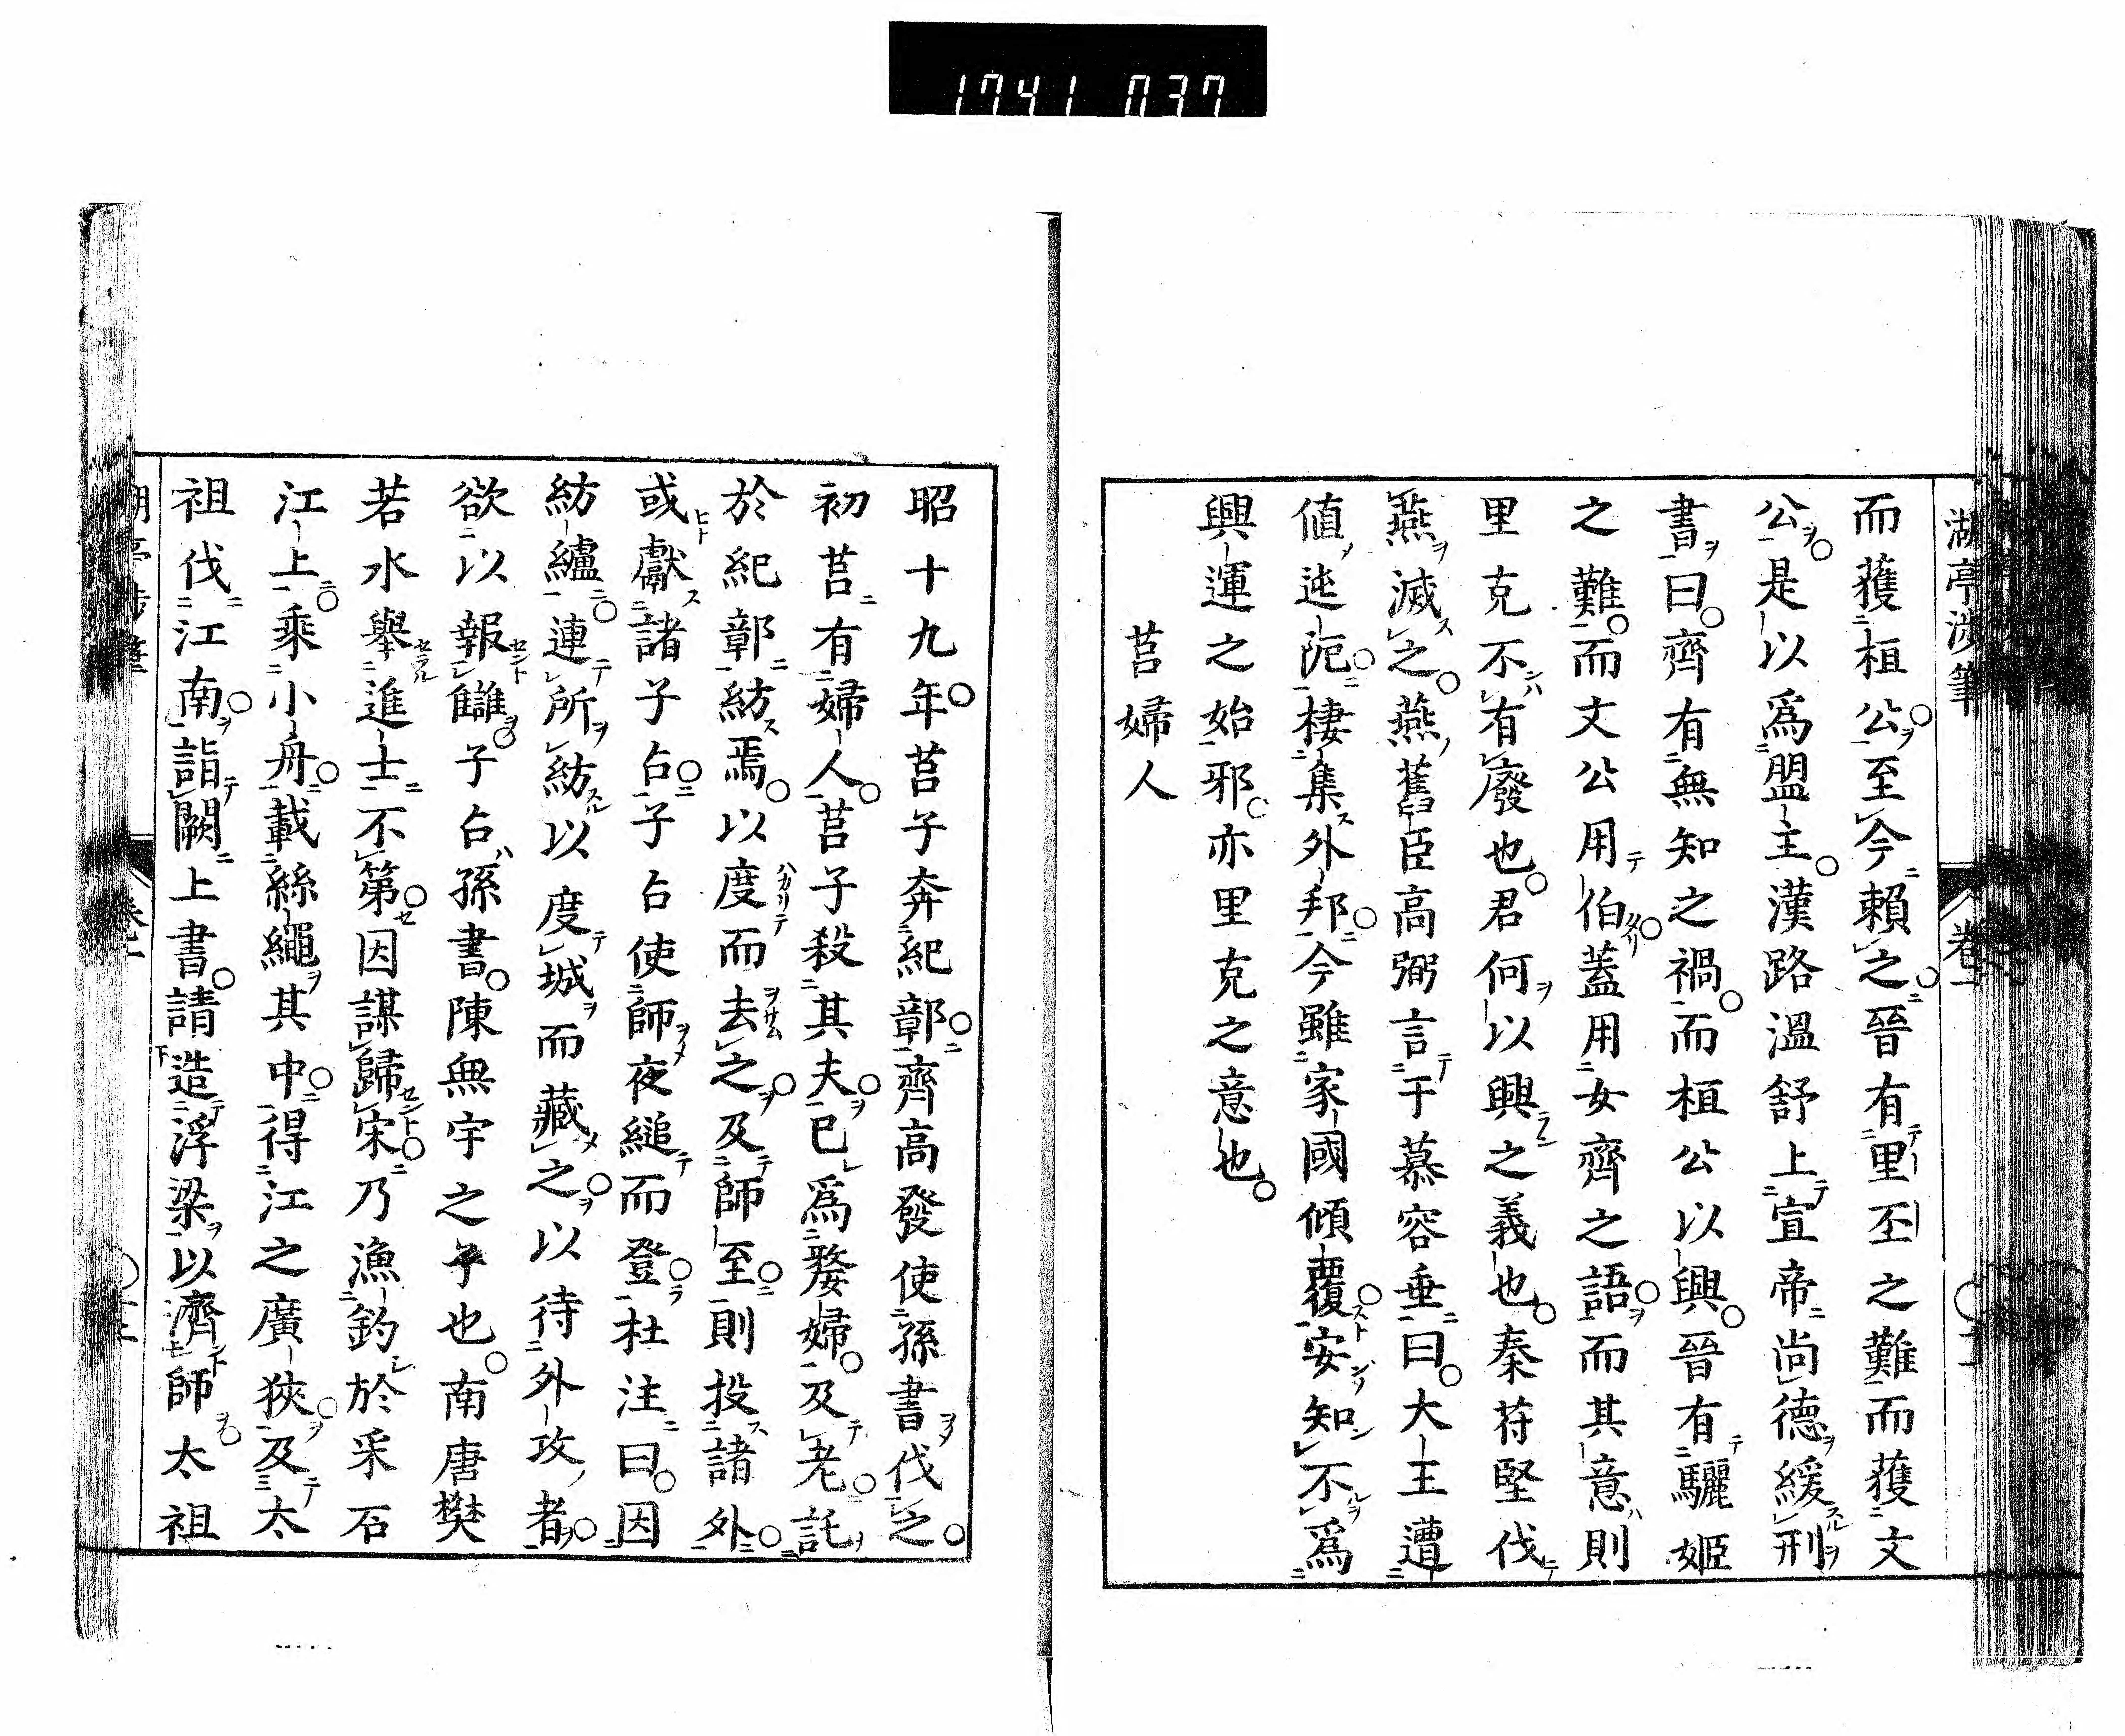 1741 037
湖亭渉筆 卷一
而獲桓公。至今賴之。晉有里丕之難而獲文
公。是以爲盟主。漢路溫舒上宣帝尚德緩刑
書曰。齊有無知之禍。而桓公以興。晉有驪姬
之難。而文公用伯。蓋用女齊之語。而其意則
里克不有廢也。君何以興之義也。秦苻堅伐
燕滅之。燕舊臣高弼言于慕容垂曰。大王遭
値迍阨。棲集外邦。今雖家國傾覆。安知不爲
興運之始邪。亦里克之意也。
莒婦人
昭十九年。莒子奔紀鄣。齊高發使孫書伐之。
初莒有婦人。莒子殺其夫。已爲嫠婦。及老。託
於紀鄣。紡焉。以度而去之。及師至。則投諸外。
或獻諸子占。子占使師夜縋而登。杜注曰。因
紡纑。連所紡以度城而藏之。以待外攻者。
欲以報讎。子占孫書。陳無宇之子也。南唐樊
若水舉進士不第。因謀歸宋。乃漁釣於采石
江上。乘小舟。載絲繩其中。得江之廣狹。及太
祖伐江南。詣闕上書。請造浮梁以濟師。太祖